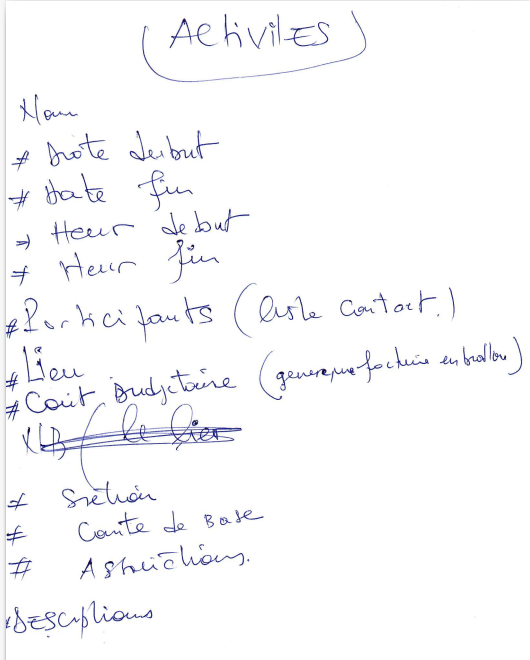 ( ACtiviTES )
Nom
# Date debut
# Date fin
→ Heur debut
# Heur fin
# Participants ( liste contact. )
# Lieu
# Cout Budgetaire ( genere une facture en brouillon )
# Section
# Comite de Base
# Astructions.
* DEScriptions